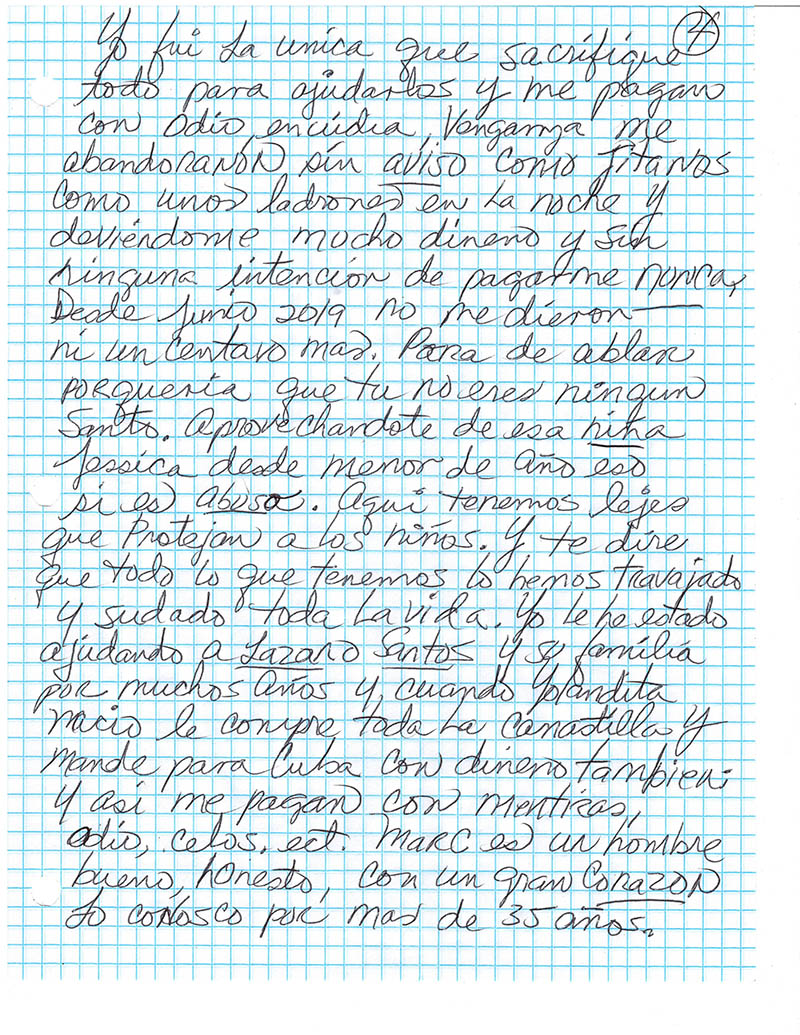 4
Yo fui La unica que sacrifique
todo para ajúdarlos y me pagan
con Odio, encidia, Venganza me
abandoranon sin aviso como Jitanos
Como unos ladrones en La noche y
deviéndome mucho dinero y sin
ninguna intención de pagarme nunca,
Desde Junio 2019 no me dieron
ni un Centavo mas. Para de ablar
porqueria que tu no eres ningun
Santo. Aprovechandote de esa niña
Jessica desde menor de Año eso
si es Abuso. Aqui tenemos lejes
que Protejan a los niños. Y te dire
que todo lo que tenemos lo hemos travajado
y sudado toda La vida. Yo le he estado
ajúdando a Lazaro Santos y su familia
por muchos años y, cuando Yolandita
nacio le compre toda La Canastilla y
mande para Cuba con dinero tambien.
Y asi me pagan con mentiras,
odio, celos, ect. MARC es un hombre
bueno, honesto, con un gran Corazon
Lo conosco por mas de 35 años.